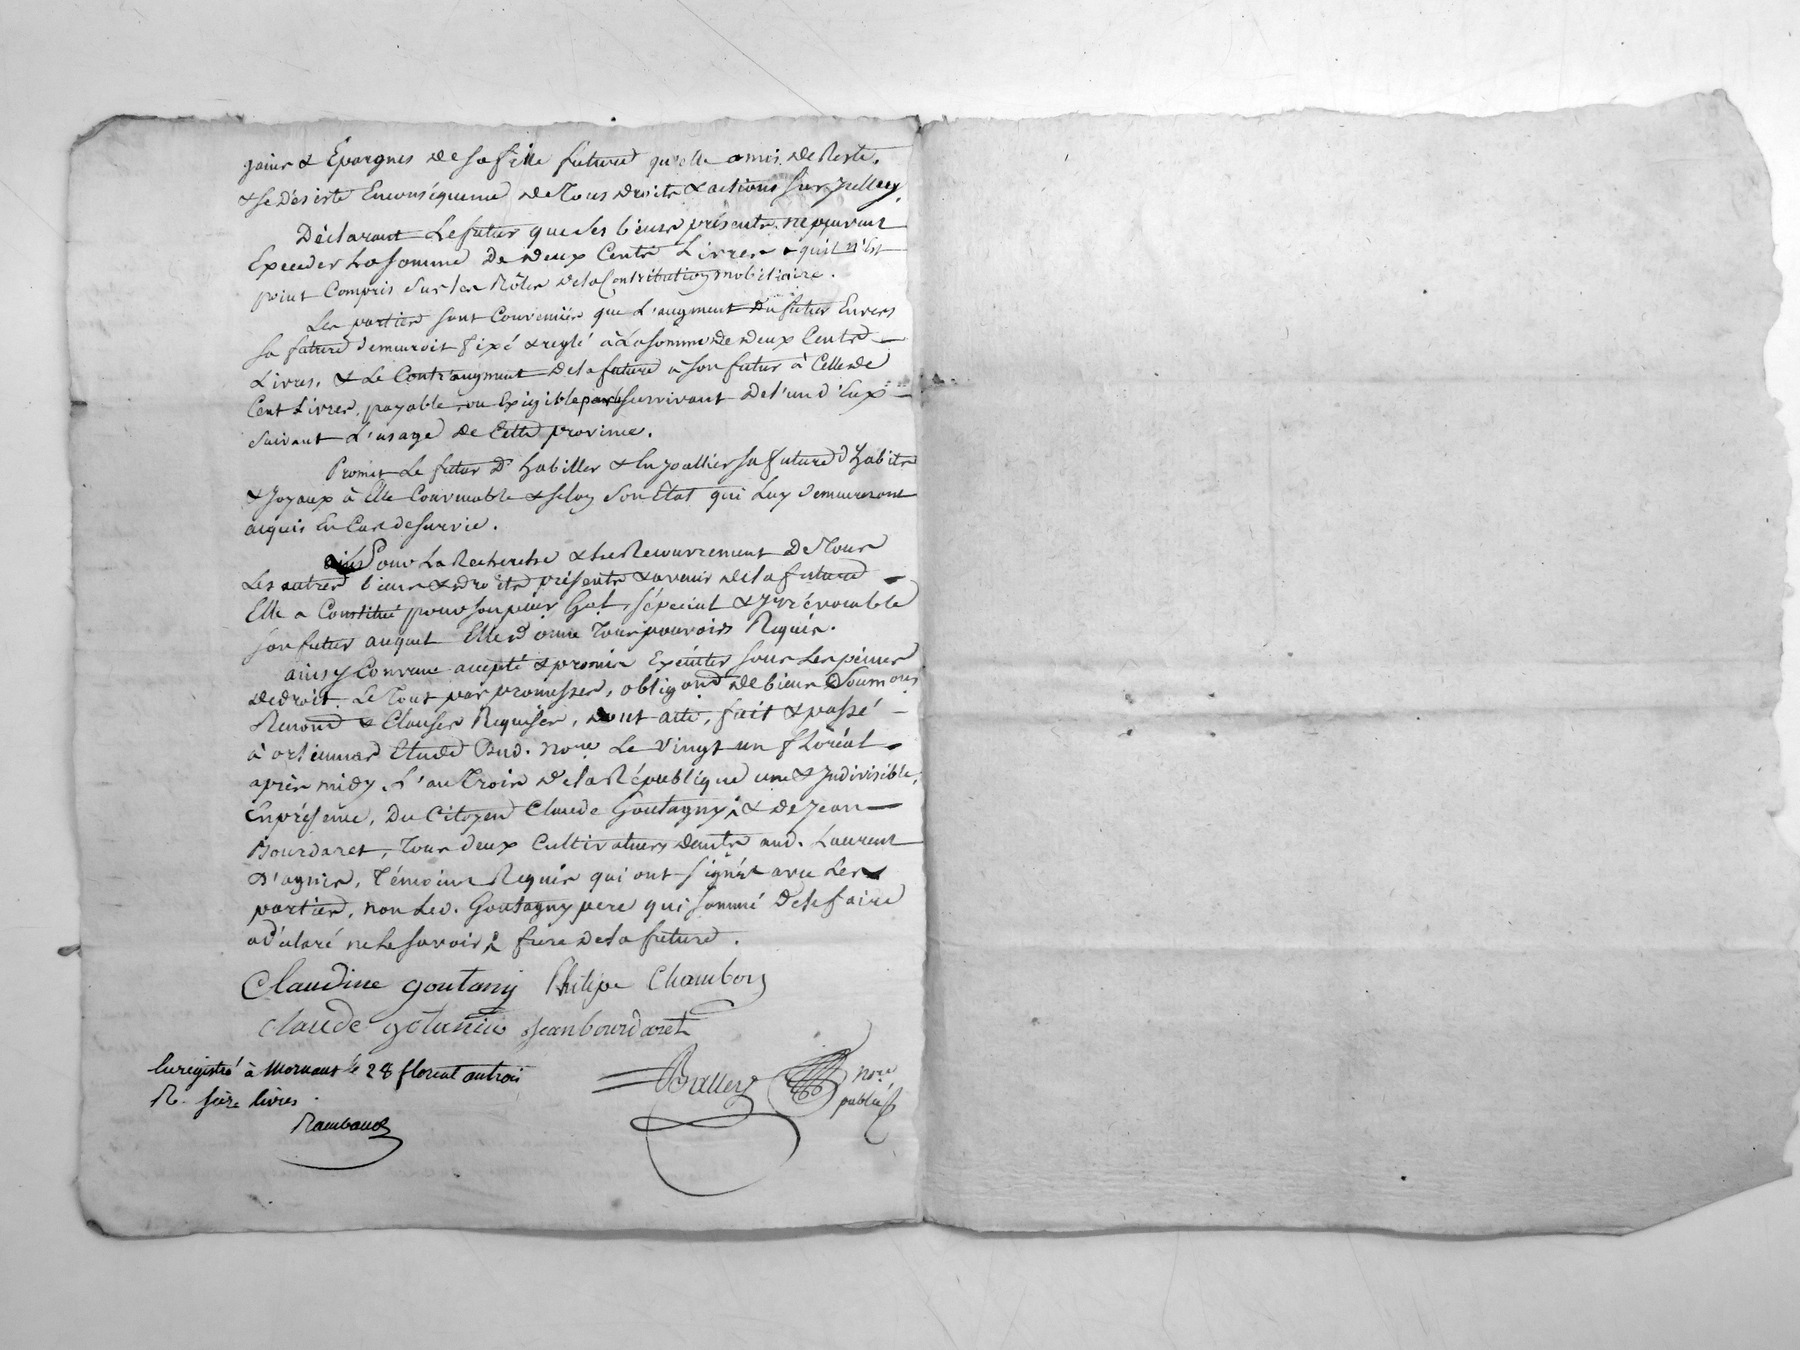 gains & Epargnes de sa fille future qu'elle a mis de Reste,
& se désiste Enconséquence de Tous droits & actions sur Icelluy.
Déclarant Le futur que ses biens présents ne peuvent
Exceeder La somme De deux Cents Livres & qu'il n'Est
point Compris sur les Rôles de la Contribution mobiliaire.
Les parties sont Convenües que L'augment Du futur Envers
sa future demeuroit fixé & reglé à La somme De deux Cents
Livres, & Le Contr'augment de la future à son futur à Celle de
Cent Livres, payable ou Exigible par le survivant De l'un d'Eux
suivant L'usage de Cette province.
Promet Le futur D'habiller & Enjoallier sa future d'habits
& Joyaux à Elle Convenable & selon son Etat qui Luy demeureront
acquis En Cas de survie.
Pour La Recherche & Le Recouvrement De Tous
Les autres biens & droits présents & avenir de la future
Elle a Constitué pour son pčeur Gal, spécial & Irrévocable
son futur auquel Elle donne Tous pouvoirs Requis.
ainsy Convenu accepté & promis Exécuter sous Les peines
de droit. Le Tout par promesses, obligaons de biens Soumons
Renons & Clauses Requises, dont acte, fait & passé
à orliennas Etude Dud. nore Le vingt un floréal
après midy, L'an Trois de la République une & Indivisible,
En présence, Du Citoyen Claude Goutagny, & De Jean
Bourdaret, Tous deux Cultivateurs dautr aud. Laurent
D'agnis, Témoins Requis qui ont signés avec Les
parties, non Led. Goutagny pere qui sommé De le faire
a déclaré ne le savoir, frere de la future.
Claudine goutany Philipe Chambon
Claude gotanie Jean bourdaret
Enregistré à Mornant le 28 floreal an trois
R. seize livres
Rambaud
Balley nore
public